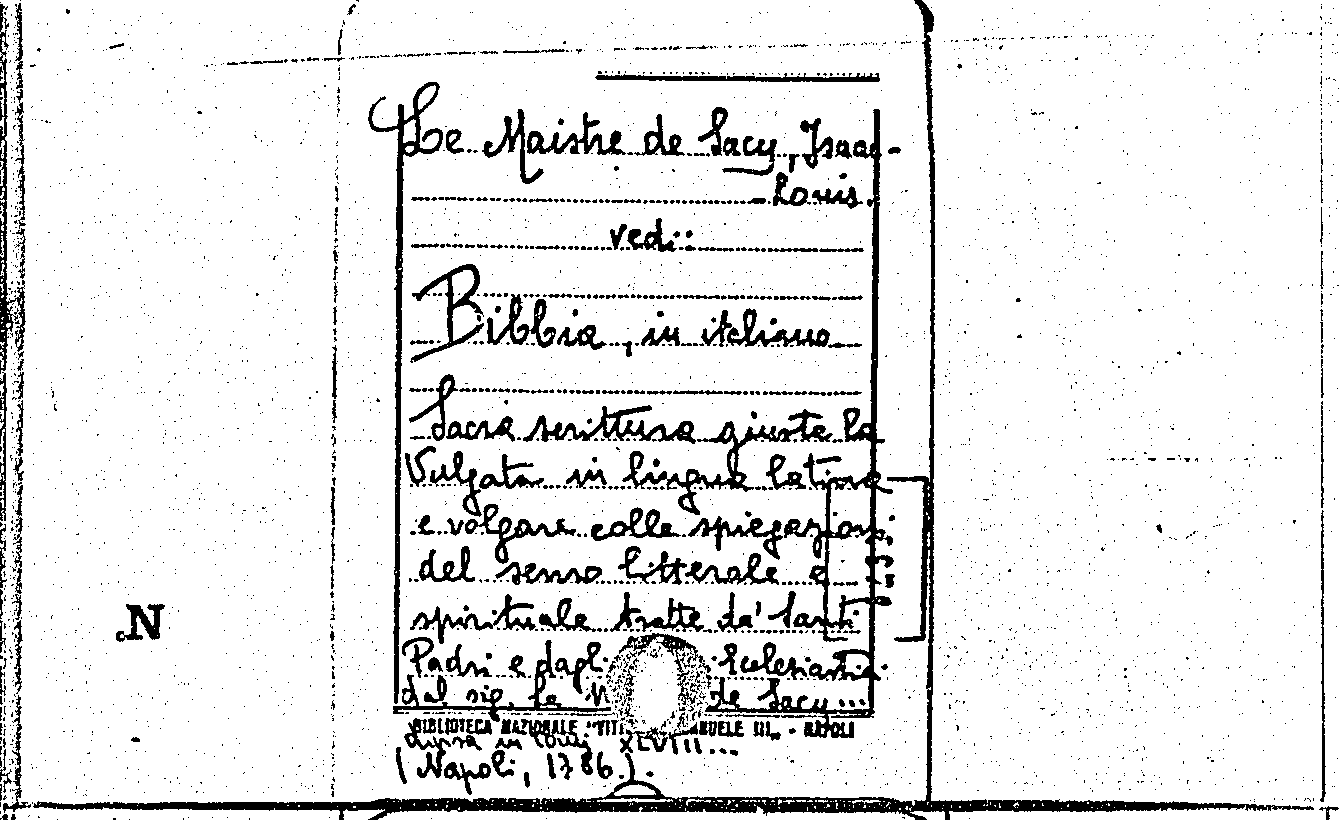 Le Maistre de Sacy, Isaac-
-Louis.
vedi:
Bibbia, in italiano
Sacra scrittura giusta la
Vulgata in lingua latina
e volgare colle spiegazioni
del senso litterale e
spirituale tratte da' Santi
Padri e dagli Ecclesiastici
dal sig. le de Sacy...
BIBLIOTECA NAZIONALE "VITT EMANUELE III" - NAPOLI
divisa in tomi XLVIII...
(Napoli, 1786).
N